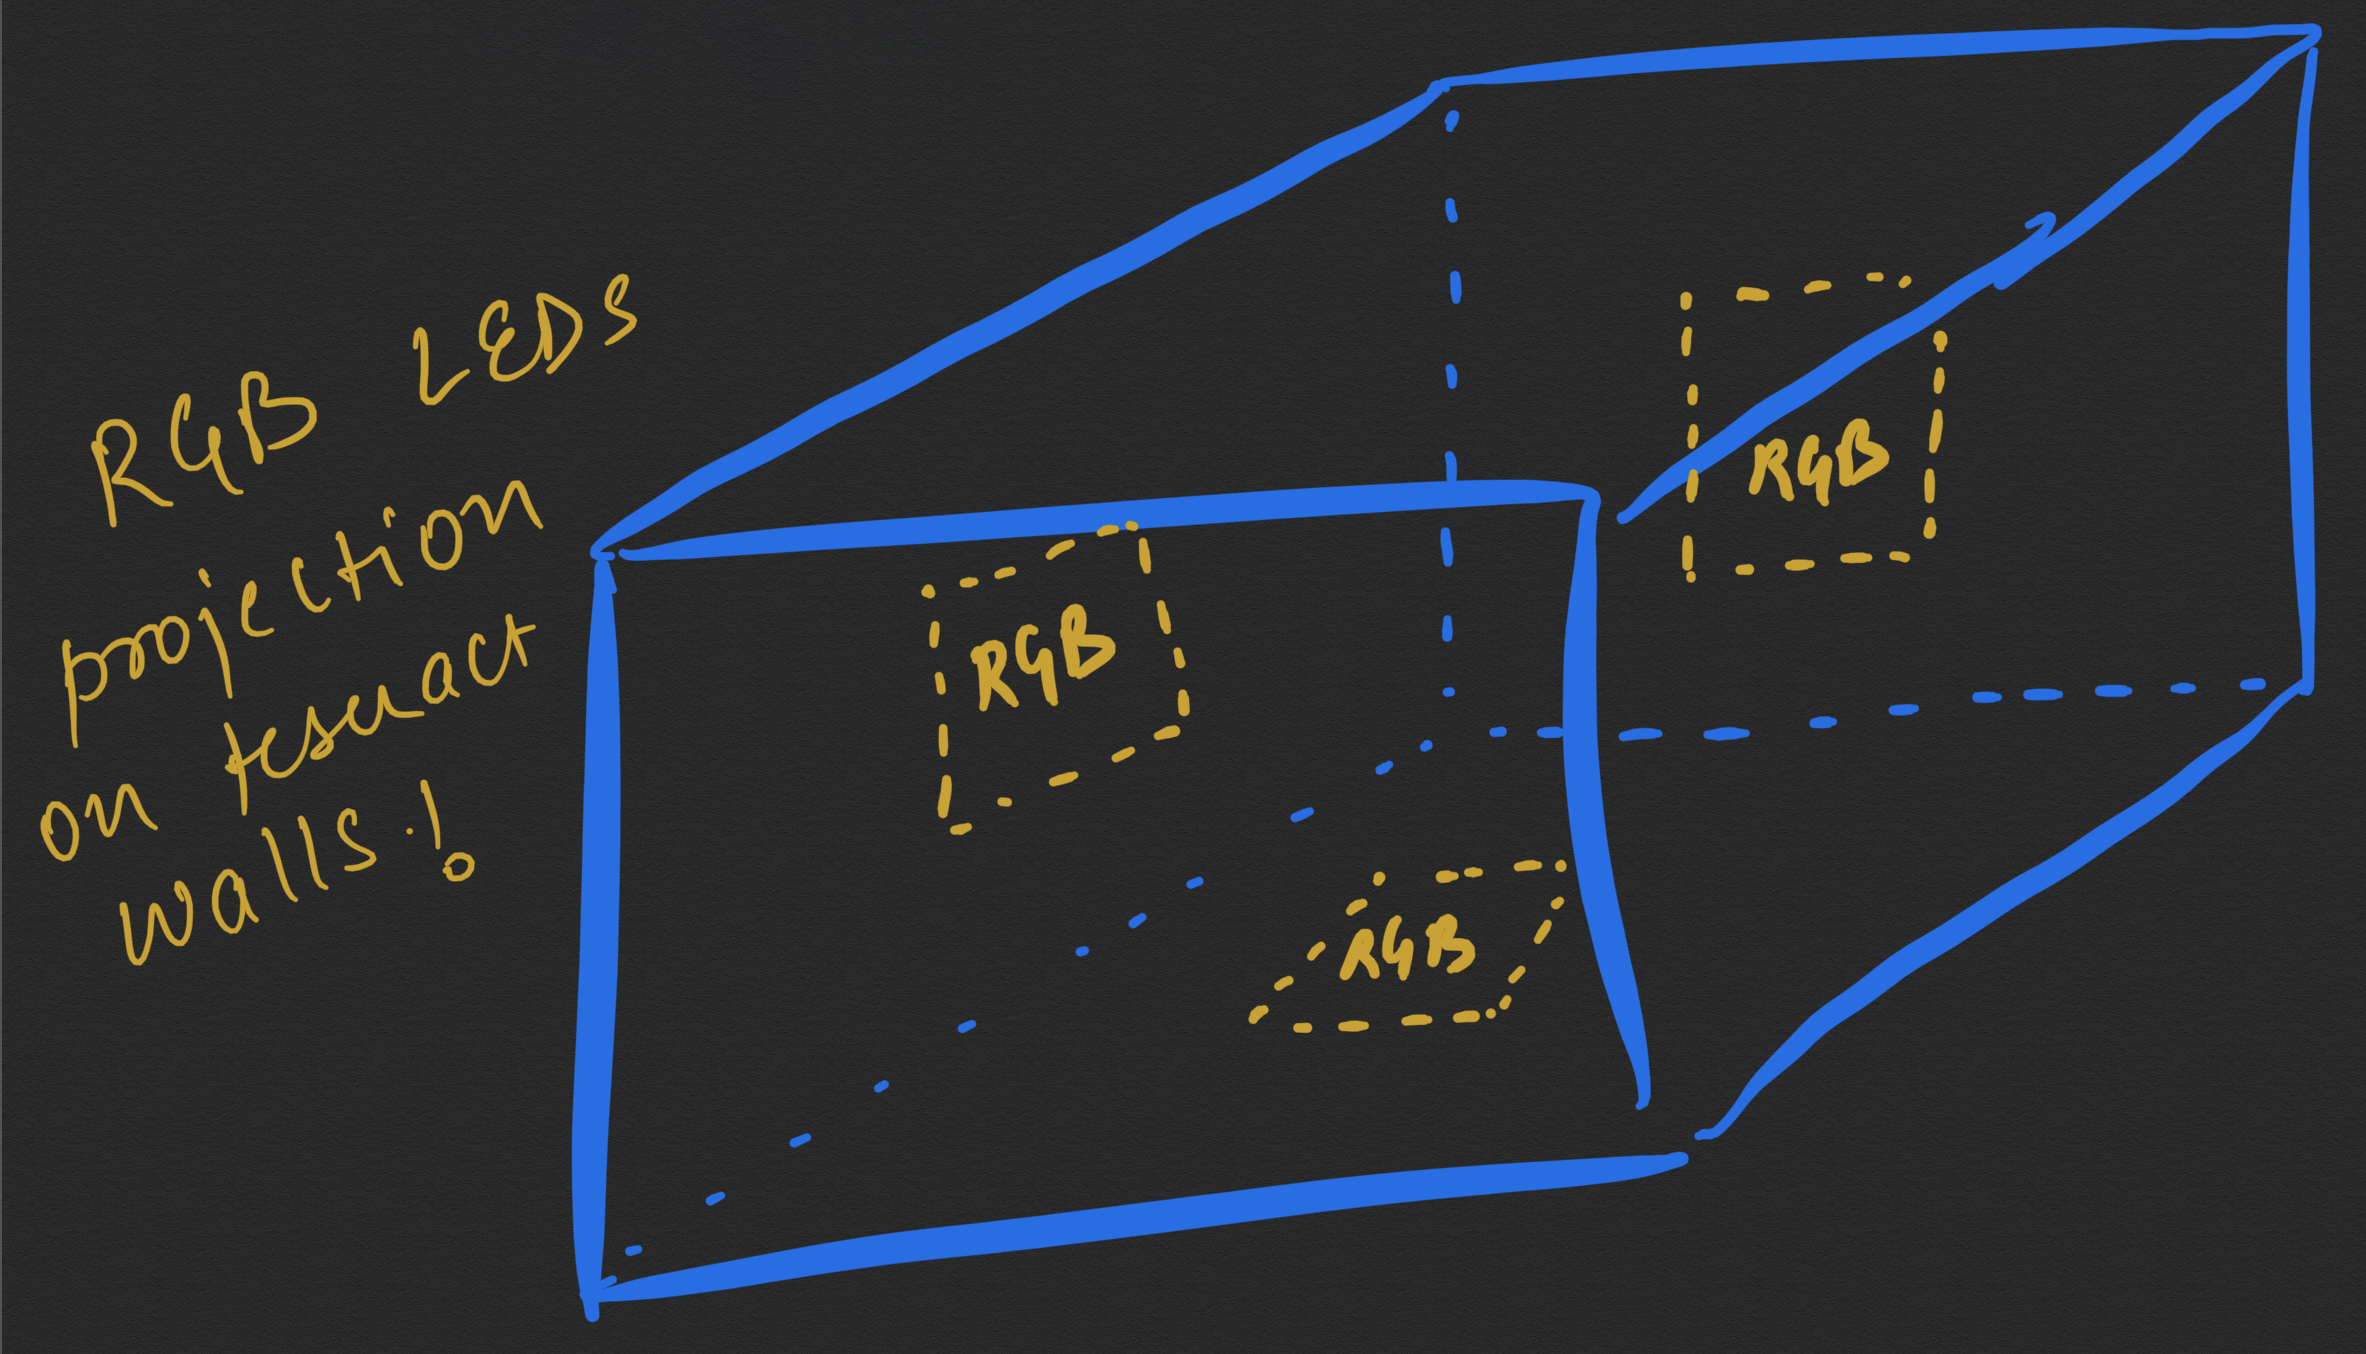 RGB LEDs
projection
on tesuact
walls.!
RGB
RGB
RGB